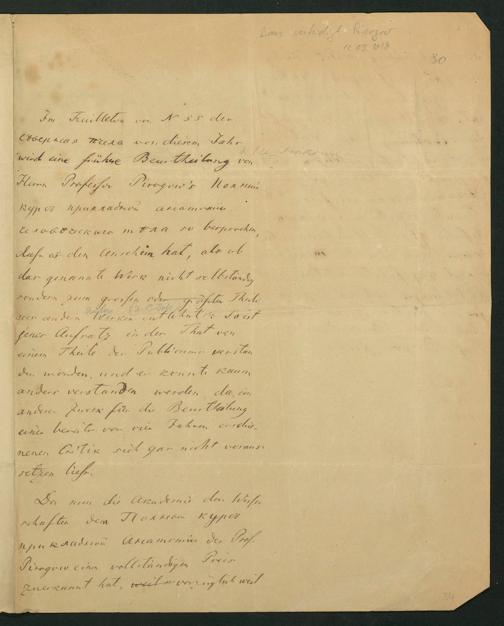 Baer verteidigt Pirogov
80
Im Feuilleton von N 55 der
северная пчела von diesem Jahr
wird eine frühere Beurtheilung von
Herrn Professor Pirogow's Полный
курсъ прикладной анатоміи
человѣческаго тѣла so besprochen,
daß es den Anschein hat, als ob
das genannte Werk nicht selbständig
sondern zum großen oder größten Theile
aus andern Werken entlehnt. So ist
jener Aufsatz in der That von
einem Theile des Publicums verstan
den worden, und er konnte kaum
anders verstanden werden, da ein
anderer Zweck für die Beurtheilung
einer bereits vor vier Jahren erschie-
nenen Critik sich gar nicht voraus-
setzen ließ.
Da nun die Akademie der Wissen
schaften dem Полный курсъ
прикладной Анатоміи des Prof.
Pirogow einen vollständigen Preis
zuerkannt hat, weil vorzüglich weil